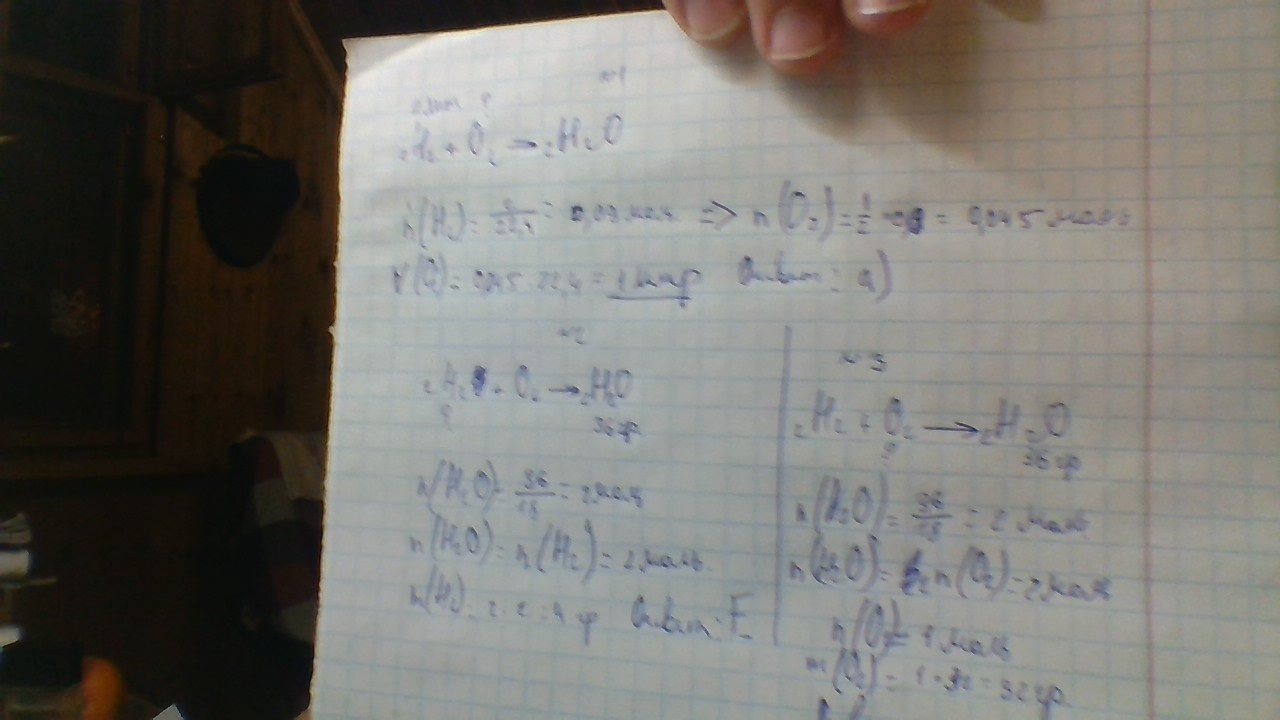 №1
2H₂ + O₂ → 2H₂O
n(H₂) = 2/22,4 = 0,09 моль => n(O₂) = 1/2 · 0,09 = 0,045 моль
V(O₂) = 0,045 · 22,4 = 1 литр Ответ: а)
№2
2H₂ + O₂ → 2H₂O
? 36гр
n(H₂O) = 36/18 = 2 моль
n(H₂O) = n(H₂) = 2 моль.
m(H₂) = 2 · 2 = 4 гр Ответ: E
№3
2H₂ + O₂ → 2H₂O
? 36 гр
n(H₂O) = 36/18 = 2 моль
n(H₂O) = 2n(O₂) = 2 моль
n(O₂) = 1 моль
m(O₂) = 1 · 32 = 32 гр.